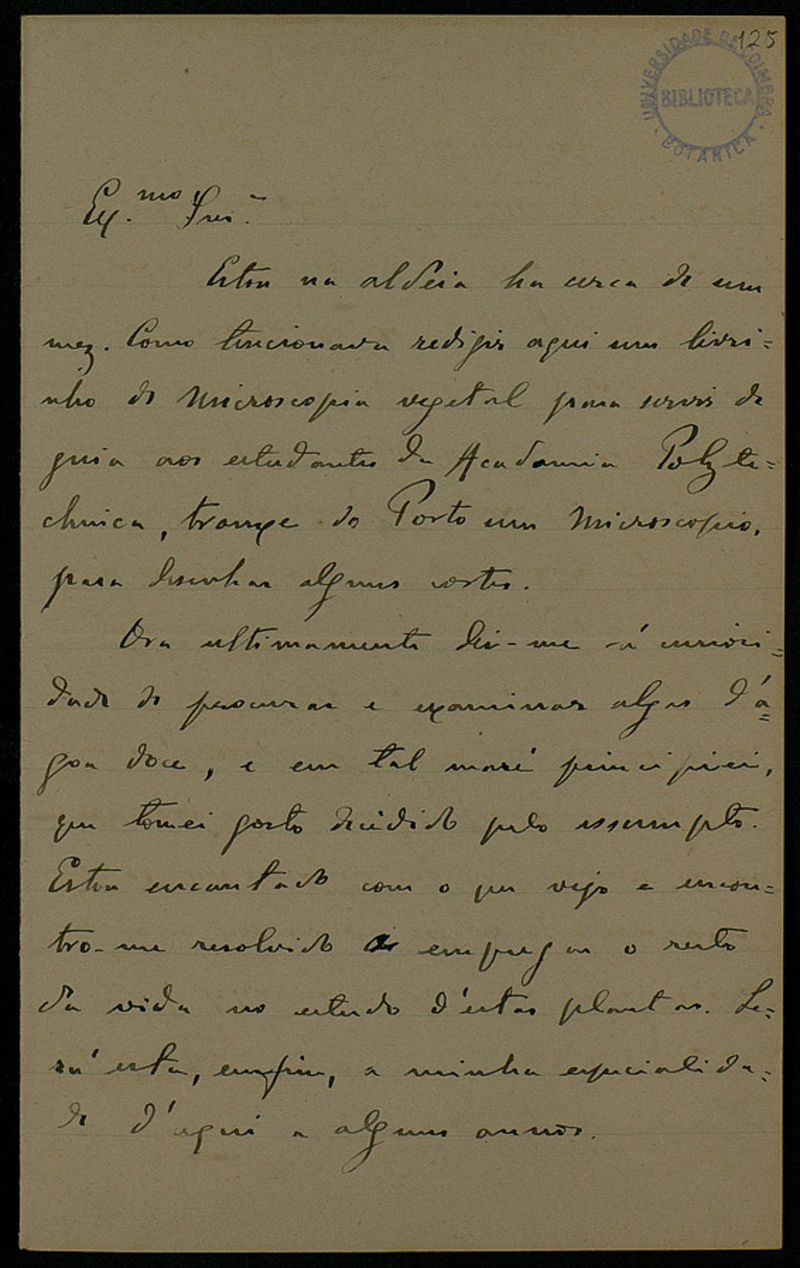 125
UNIVERSIDADE DE COIMBRA
BIBLIOTECA
BOTANICA
Ex.mo Snr.
Estou na aldeia ha cerca de um
mez. Como tencionava redigir aqui um livri=
nho de Microscopia vegetal para servir de
guia aos estudantes da Academia Polyte=
chnica, trouxe do Porto um Microscopio,
para desenhar alguns cortes.
Ora ultimamente deu-me a curiosi=
dade de procurar e examinar algas d'a=
goa doce, e em tal maré principiei,
que tomei gosto decidido pelo assumpto.
Estou encantado com o que vejo e encon=
tro-me resolvido a empregar o resto
da vida no estudo d'estas plantas. Se=
rá esta, emfim, a minha especialida=
de d'aqui a alguns annos.